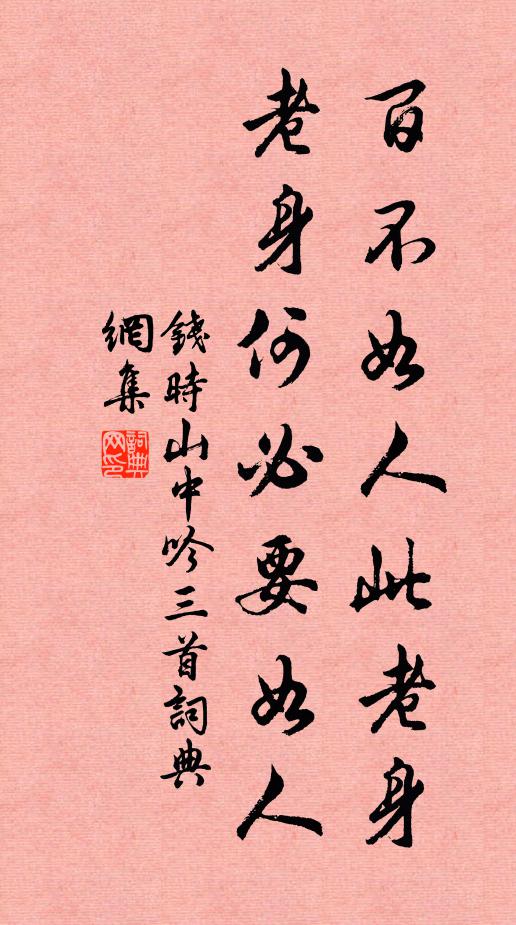 百不如人此老身
老身何必要如人
錢時山中吟三首詞典
網集
詞典網印